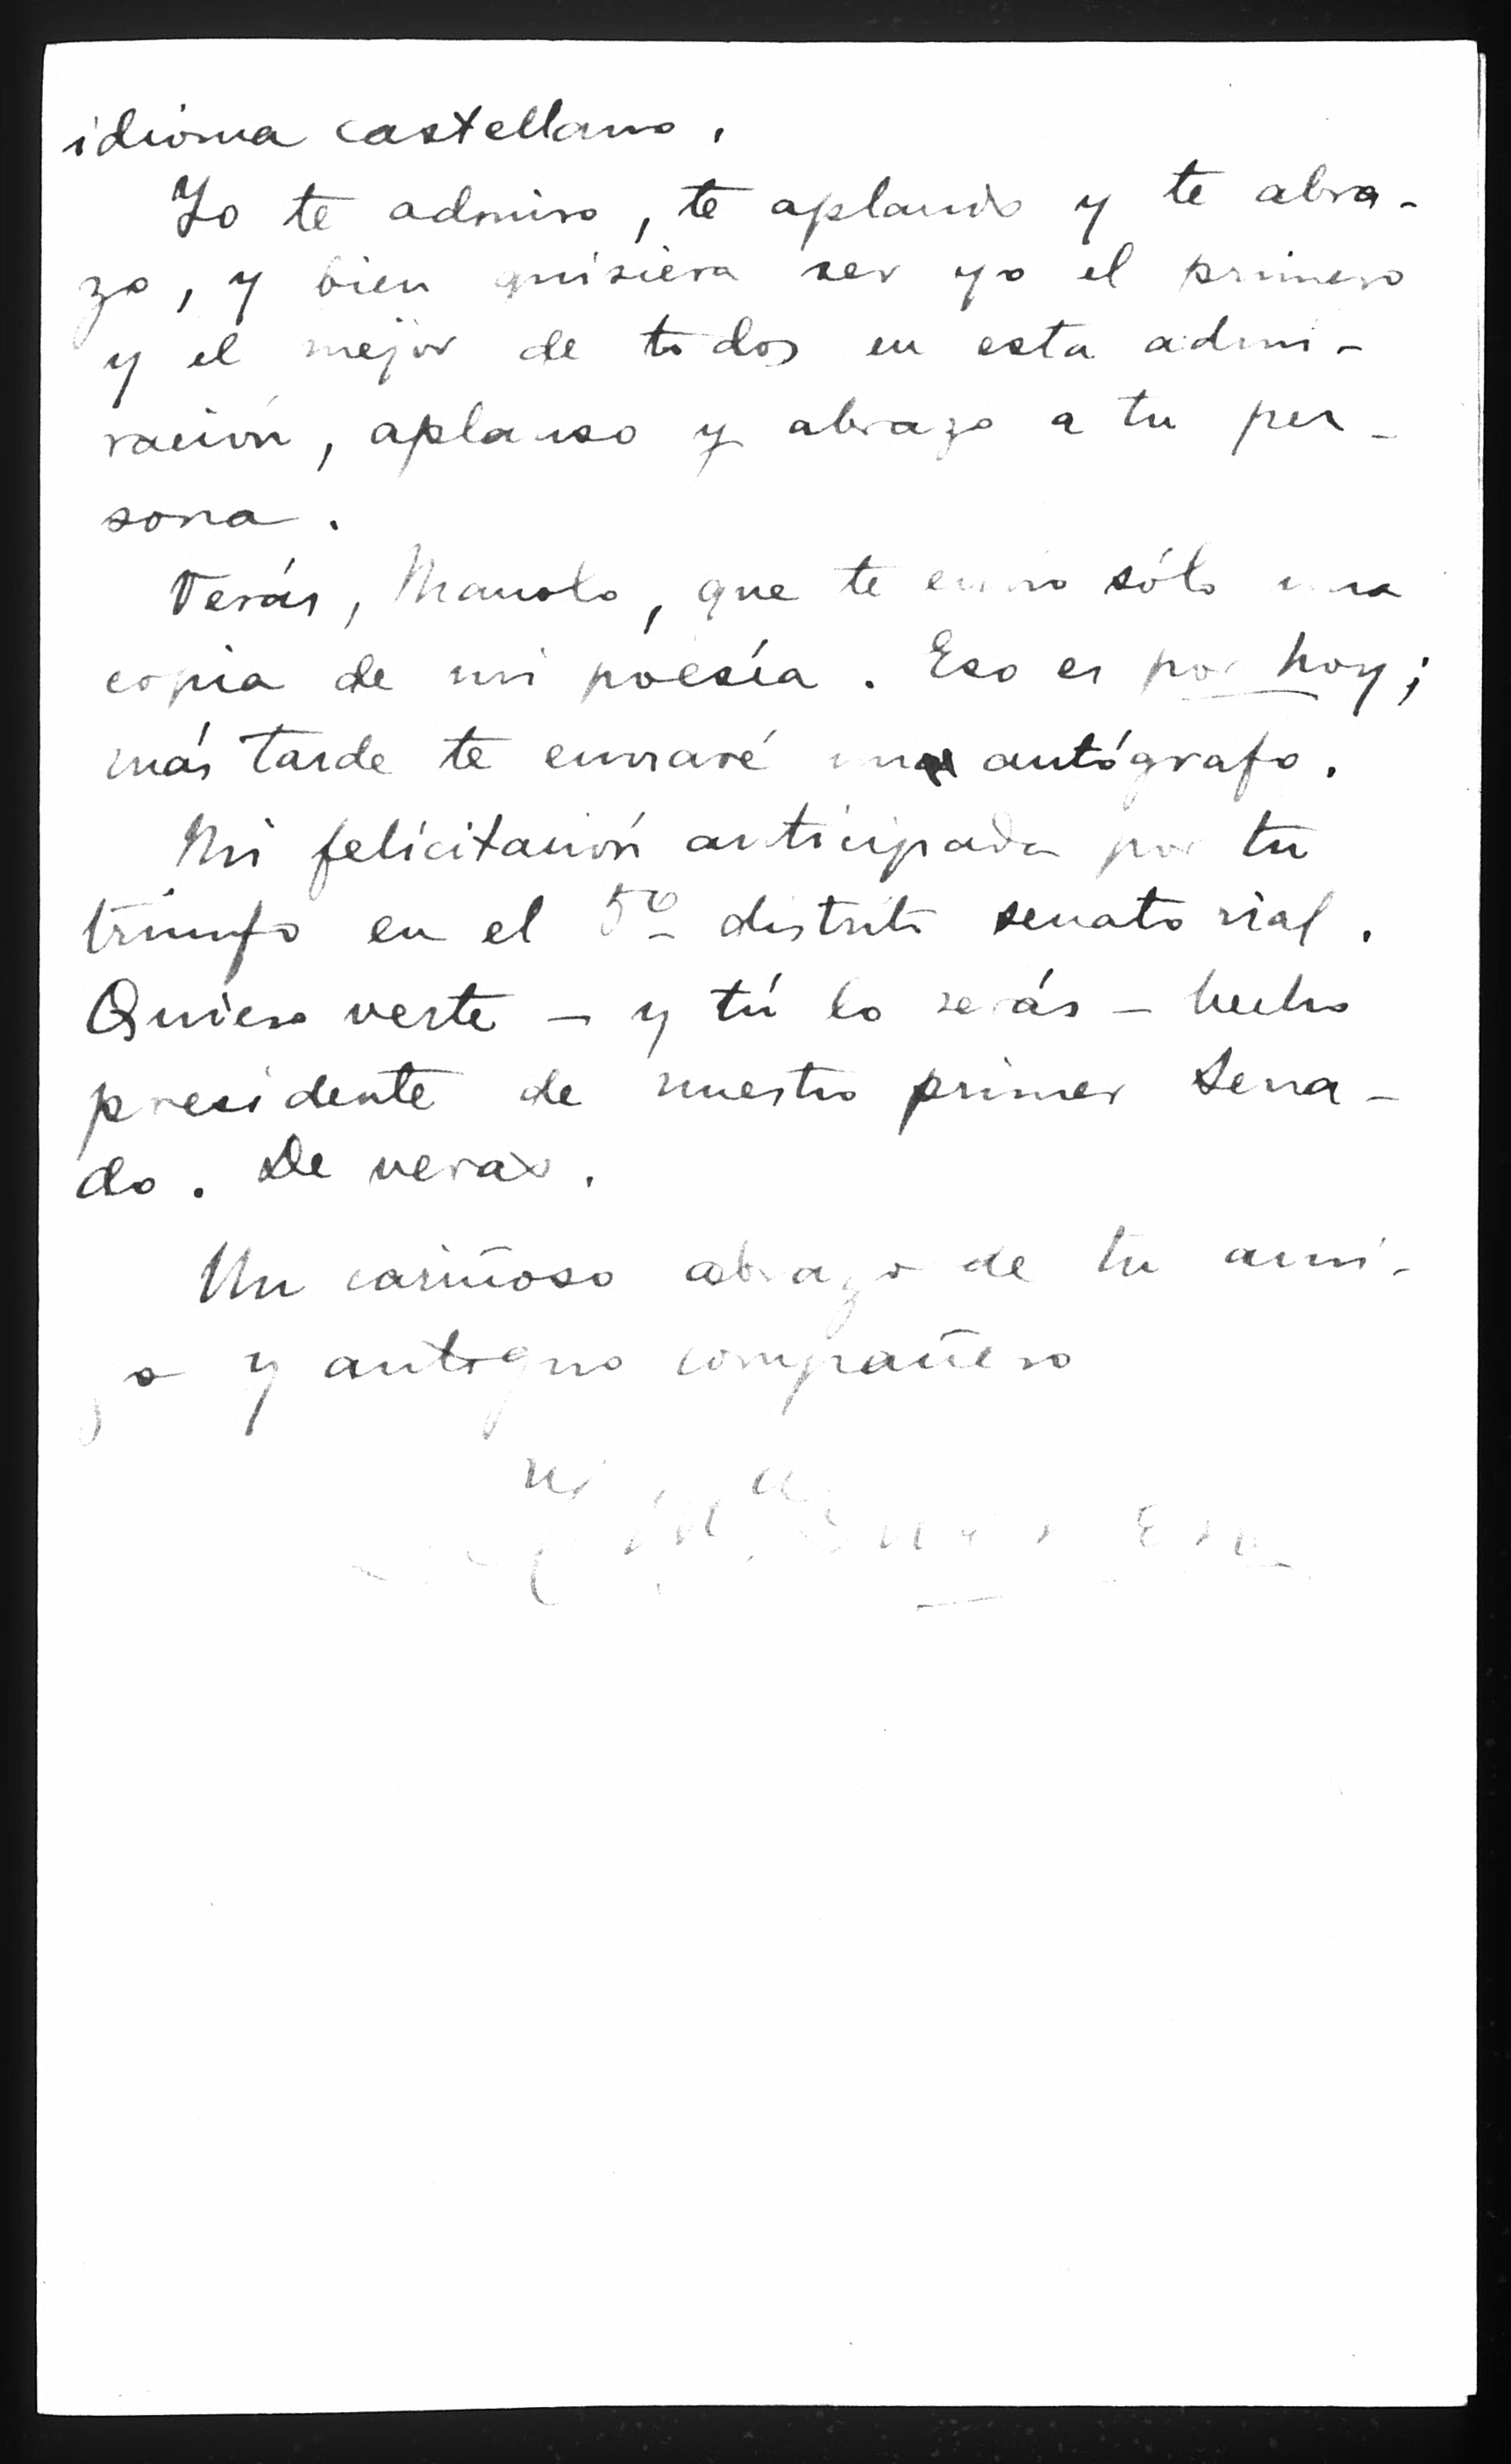 idioma castellano.
Yo te admiro, te aplaudo y te abra-
zo, y bien quisiera ser yo el primero
y el mejor de todos en esta admi-
ración, aplauso y abrazo a tu per-
sona.
Verás, Manolo, que te envío sólo una
copia de mi poesía. Eso es por hoy;
más tarde te enviaré un autógrafo.
Mi felicitación anticipada por tu
triunfo en el 5º distrito senatorial.
Quiero verte - y tú lo serás - hecho
presidente de nuestro primer Sena-
do. De veras.
Un cariñoso abrazo de tu ami-
go y antiguo compañero